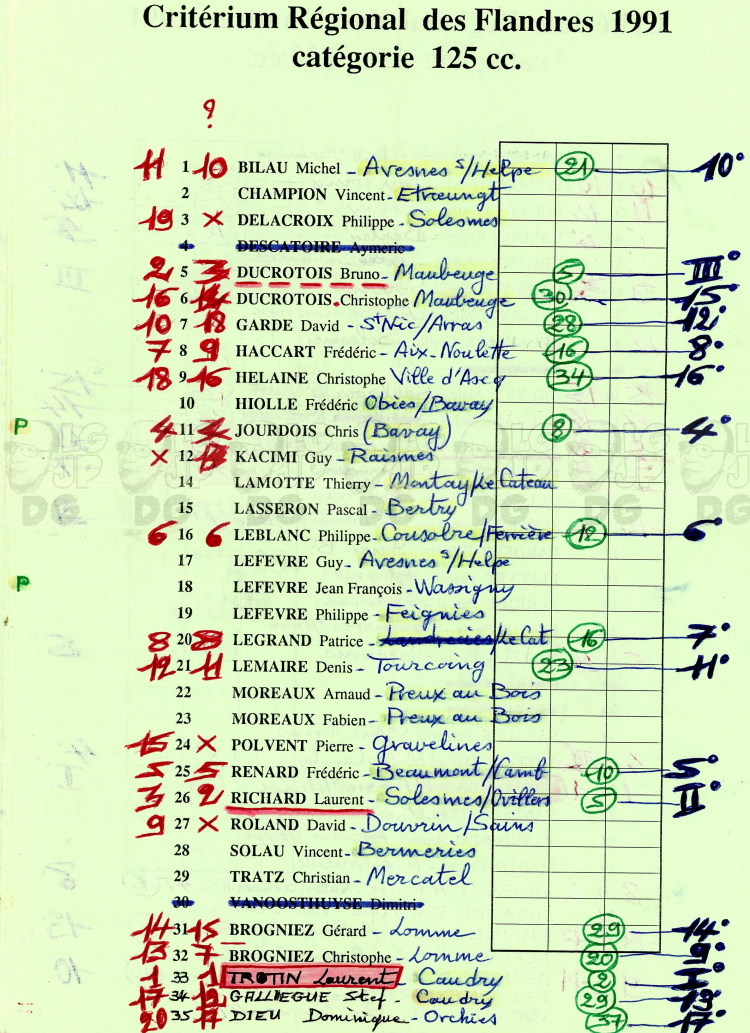 Critérium Régional des Flandres 1991
catégorie 125 cc.
?
11 1 10 BILAU Michel - Avesnes s/Helpe 21 10°
2 CHAMPION Vincent - Etroeungt
19 3 X DELACROIX Philippe - Solesmes
4 DESCATOIRE Aymeric
2 5 3 DUCROTOIS Bruno - Maubeuge 5 III°
16 6 DUCROTOIS Christophe Maubeuge 30 15°
10 7 18 GARDE David - St Nic/Arras 28 12°
7 8 9 HACCART Frédéric - Aix-Noulette 16 8°
18 9 16 HELAINE Christophe Ville d'Ascq 34 16°
10 HIOLLE Frédéric Obies/Bavay
4 11 JOURDOIS Chris (Bavay) 8 4°
X 12 KACIMI Guy - Raismes
14 LAMOTTE Thierry - Montay/Le Cateau
15 LASSERON Pascal - Bertry
6 16 6 LEBLANC Philippe - Cousolre/Ferrière 12 6°
17 LEFEVRE Guy - Avesnes s/Helpe
18 LEFEVRE Jean François - Wassigny
19 LEFEVRE Philippe - Feignies
8 20 8 LEGRAND Patrice - Landrecies/Le Cat 16 7°
12 21 11 LEMAIRE Denis - Tourcoing 23 11°
22 MOREAUX Arnaud - Preux au Bois
23 MOREAUX Fabien - Preux au Bois
15 24 X POLVENT Pierre - Gravelines
5 25 5 RENARD Frédéric - Beaumont/Camb 10 5°
3 26 2 RICHARD Laurent - Solesmes/Ovillers 5 II°
9 27 X ROLAND David - Douvrin/Sains
28 SOLAU Vincent - Bermeries
29 TRATZ Christian - Mercatel
30 VANOOSTHUYSE Dimitri
14 31 15 BROGNIEZ Gérard - Lomme 29 14°
13 32 7 BROGNIEZ Christophe - Lomme 20 9°
1 33 1 TROTIN Laurent - Caudry 2 I°
17 34 12 GALLIEGUE Stef - Caudry 29 13°
20 35 17 DIEU Dominique - Orchies 37 17°
P
P
LG JP DG